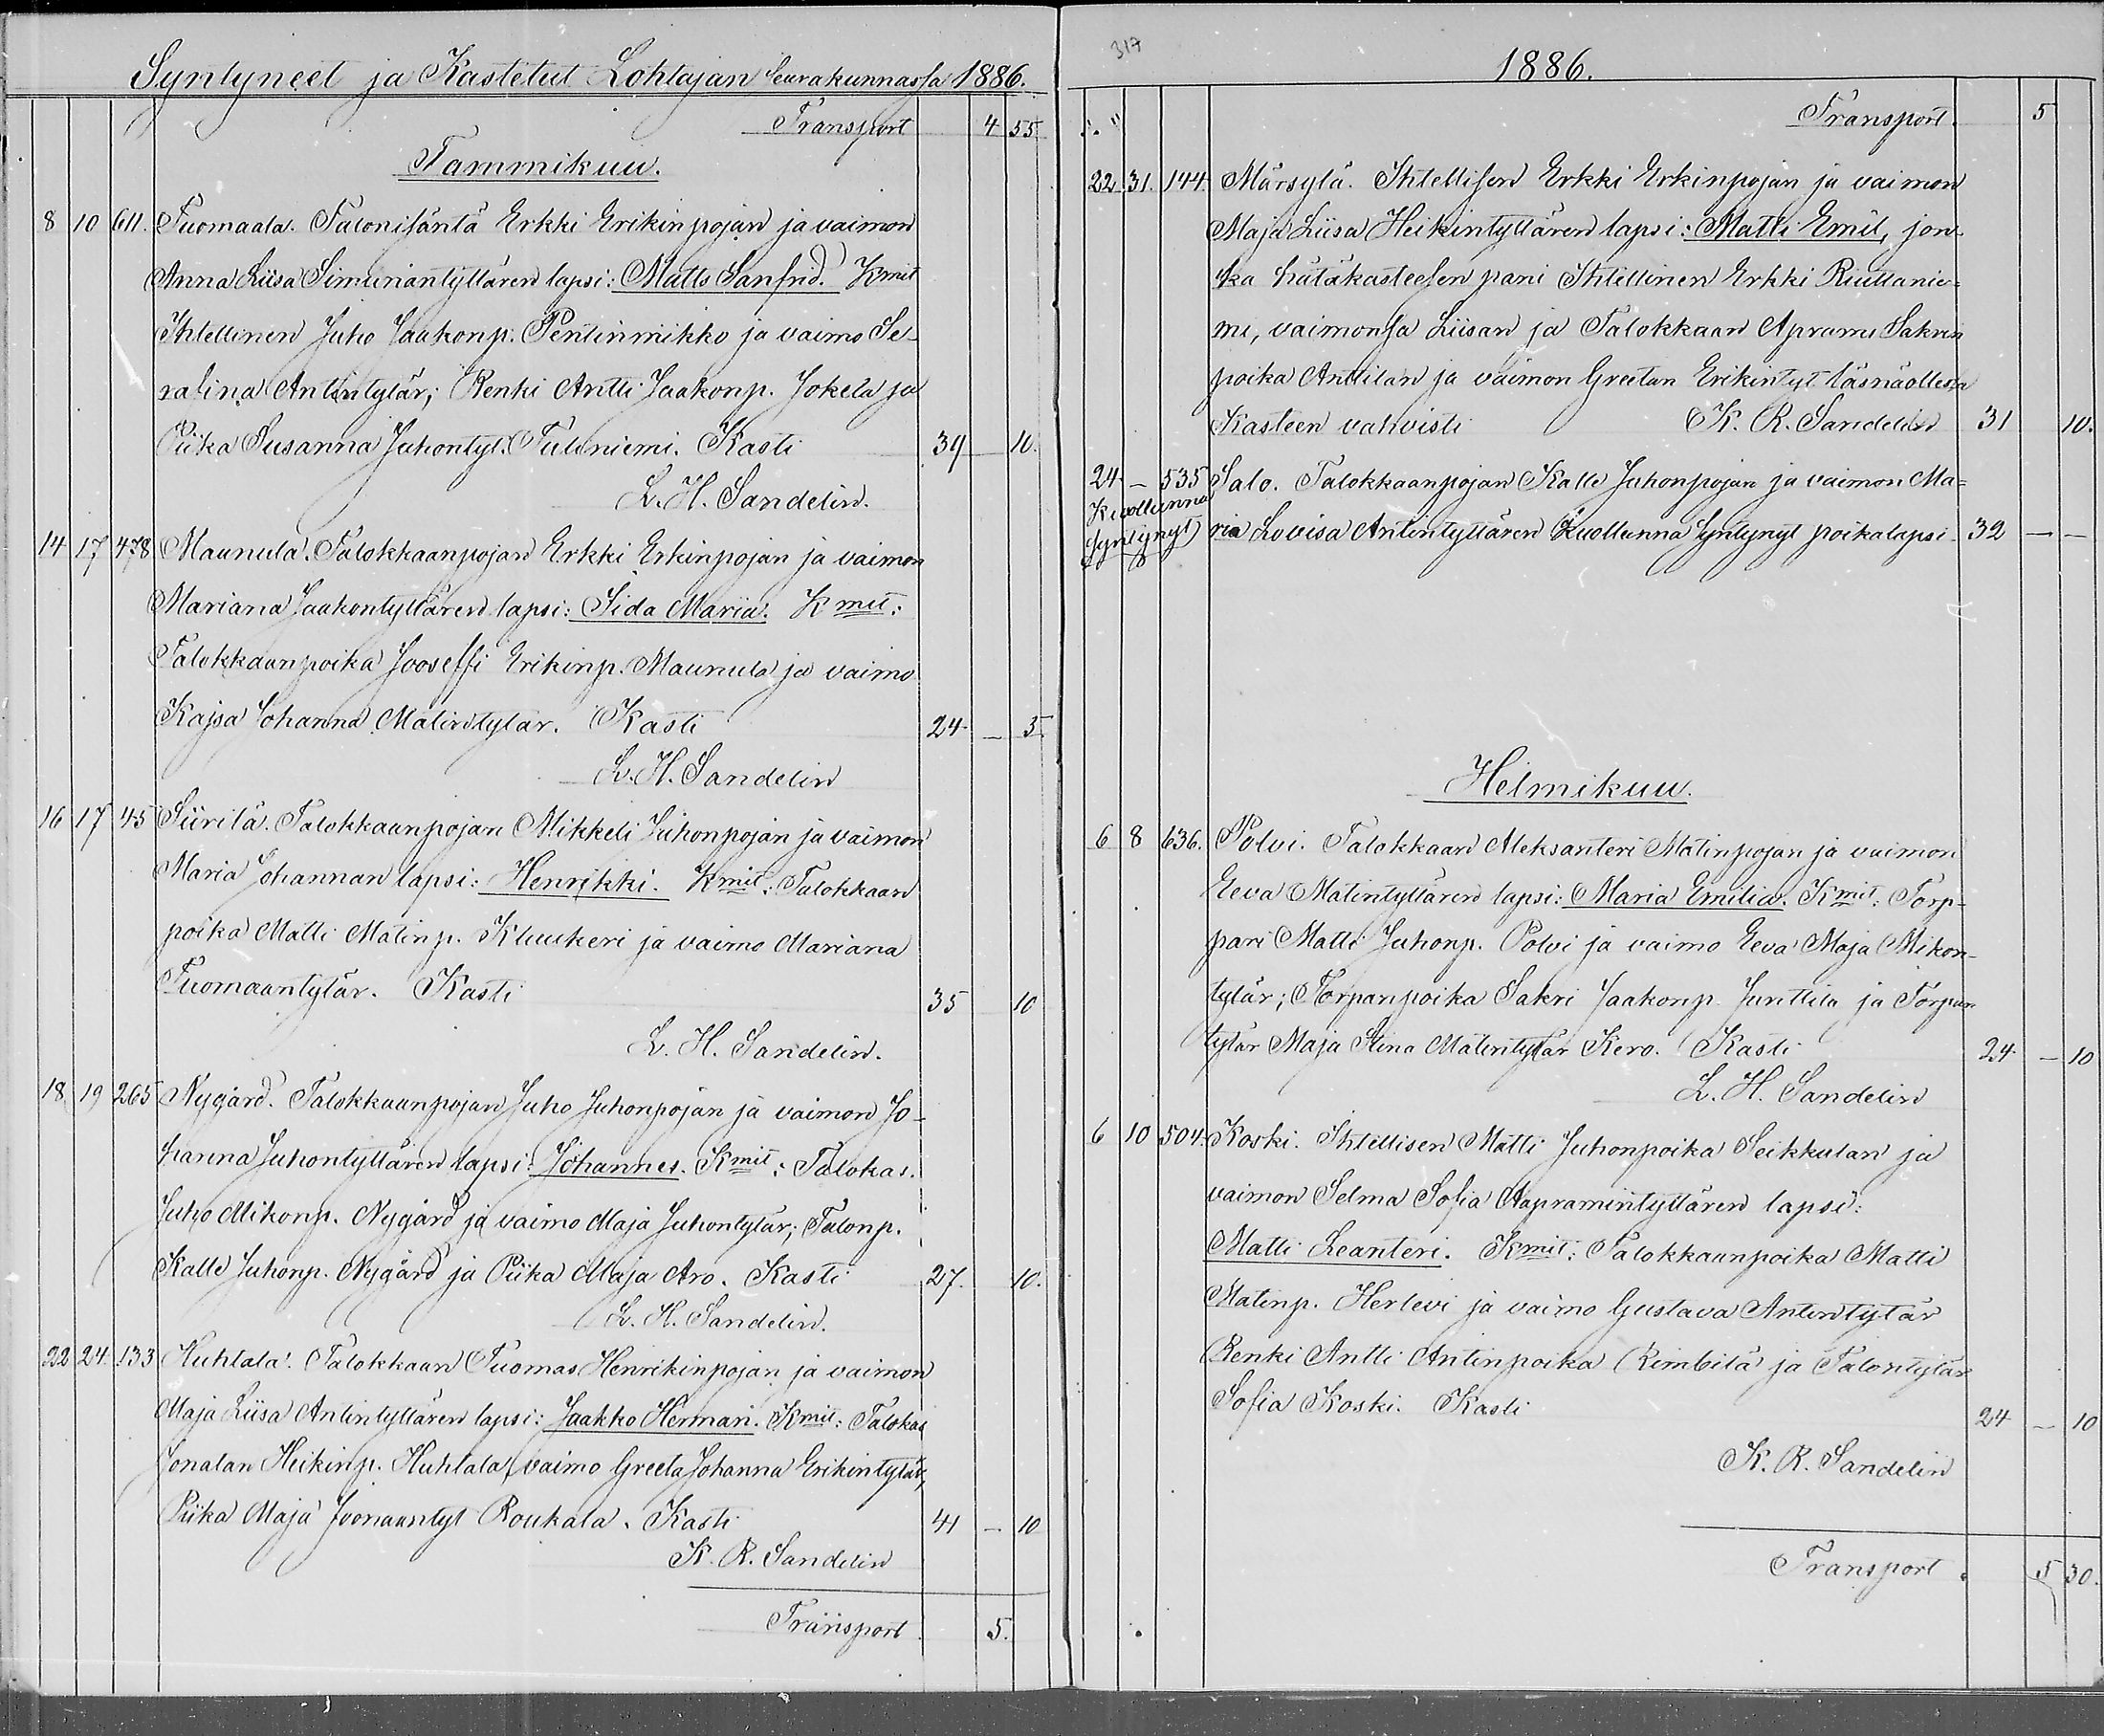 Syntyneet ja Kastetut Lohtajan seurakunnassa 1886.
Transport 4 55
Tammikuu.
8 10 611. Tuomaala. Talonisäntä Erkki Erikinpojan ja vaimon
Anna Liisa Simunantyttären lapsi: Matts Sanfrid. Kmit
Ihtellinen Juho Jaakonp. Pentinmikko ja vaimo Se-
rafina Antintytär; Renki Antti Jaakonp. Jokela ja
Piika Susanna Juhontyt. Tuluniemi. Kasti 39 10.
L. H. Sandelin.
14 17 478 Maunula. Talokkaanpojan Erkki Erkinpojan ja vaimon
Mariana Jaakontyttären lapsi: Sida Maria. Kmit:
Talokkaanpoika Jooseffi Erikinp. Maunula ja vaimo
Kajsa Johanna Matintytär. Kasti 24 – 5.
L. H. Sandelin
16 17 45 Siirilä. Talokkaanpojan Mikkeli Juhonpojan ja vaimon
Maria Johannan lapsi: Henrikki. Kmit: Talokkaan
poika Matti Matinp. Kluukeri ja vaimo Mariana
Tuomaantytär. Kasti 35 10
L. H. Sandelin.
18 19 265 Nygård. Talokkaanpojan Juho Juhonpojan ja vaimon Jo-
hanna Juhontyttären lapsi: Johannes. Kmit: Talokas.
Juho Mikonp. Nygård ja vaimo Maja Juhontytär; Talonp.
Kalle Juhonp. Nygård ja Piika Maja Aro. Kasti 27. 10.
L. H. Sandelin.
22 24 133 Huhtala. Talokkaan Tuomas Henrikinpojan ja vaimon
Maja Liisa Antintyttären lapsi: Jaakko Herman. Kmit: Talokas
Jonatan Heikinp. Huhtala, vaimo Greeta Johanna Erikintytär,
Piika Maja Joonaantyt Roukala. Kasti 41 – 10
K. R. Sandelin
Transport 5.
317
1886.
Transport. 5
22 31. 144. Märsylä. Ihtellisen Erkki Erkinpojan ja vaimon
Maja Liisa Heikintyttären lapsi: Matti Emil, jon-
ka hätäkasteesen pani Ihtellinen Erkki Riuttanie-
mi, vaimonsa Liisan ja Talokkaan Apramı Sakrin
poika Anttilan ja vaimon Greetan Erikintyt läsnäollessa
Kasteen vahvisti K. R. Sandelin 31 10.
24 – 535 Salo. Talokkaanpojan Kalle Juhonpojan ja vaimon Ma-
Kuolluna
syntynyt ria Lovisa Antintyttären Kuollunna syntynyt poikalapsi 32 – –
Helmikuu.
6 8 636. Polvi. Talokkaan Aleksanteri Matinpojan ja vaimon
Eeva Matintyttären lapsi: Maria Emilia. Kmit: Torp-
pari Matti Juhonp. Polvi ja vaimo Eeva Maja Mikon-
tytär; Torpanpoika Sakri Jaakonp. Junttila ja Torpan
tytär Maja Stina Matintytär Kero. Kasti 24 – 10
L. H. Sandelin
6 10 504. Koski. Ihtellisen Matti Juhonpoika Seikkulan ja
vaimon Selma Sofia Aapramintyttären lapsi:
Matti Leanteri. Kmit: Talokkaanpoika Matti
Matinp. Herlevi ja vaimo Gustava Antintytär
Renki Antti Antinpoika Rimbilä ja Talontytär
Sofia Koski. Kasti 24 – 10
K. R. Sandelin
Transport. 5 30.